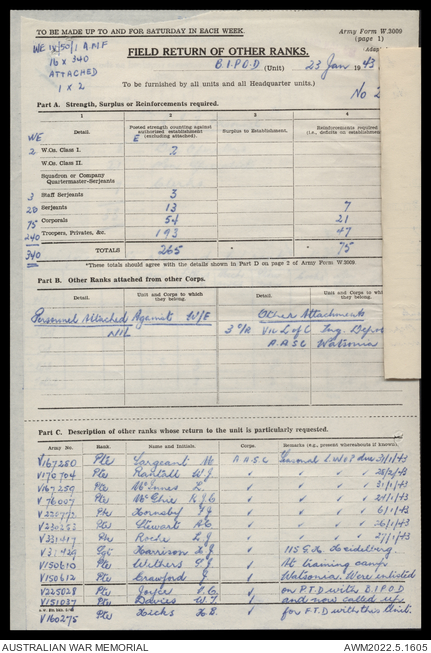 TO BE MADE UP TO AND FOR SATURDAY IN EACH WEEK.
Army Form W.3009
(page 1)
WE IX/50/1 AMF
16 x 340
ATTACHED
1 x 2
FIELD RETURN OF OTHER RANKS.
B.I.P.O.D (Unit) 23 Jan 1943
To be furnished by all units and all Headquarter units.)
No 2
Part A. Strength, Surplus or Reinforcements required.
1 2 3 4
WE Detail. Posted strength counting against authorised establishment (excluding attached). Surplus to Establishment. Reinforcements required (i.e., deficits on establishment
2 W.Os. Class I. 2
W.Os. Class II.
Squadron or Company
Quartermaster-Serjeants
3 Staff Serjeants 3
20 Serjeants 13 7
75 Corporals 54 21
240 Troopers, Privates, &c. 193 47
340 TOTALS 265 * 75
*These totals should agree with the details shown in Part D on page 2 of Army Form W.3009.
Part B. Other Ranks attached from other Corps.
Detail. Unit and Corps to which they belong. Detail. Unit and Corps to which they belong
Personnel Attached Against W/E Other Attachments
NIL 3 Vic L of C
A.A.S.C Watsonia
Part C. Description of other ranks whose return to the unit is particularly requested.
Army No. Rank. Name and Initials. Corps. Remarks (e.g., present whereabouts if known).
V167280 Pte Sargeant M A.A.S.C L.W.O.P due 31/1/43
V170704 Pte Randall W.J. ✓ ✓ ✓ 28/2/43
V167259 Pte McInnes L. ✓ ✓ ✓ 31/1/43
V76007 Pte McGhie ✓ ✓ ✓
Pte Hornsby ✓ ✓ ✓
V230253 Pte Stewart ✓ ✓ ✓ 26/1/43
V331417 Pte Roche L.J ✓ ✓ ✓ 27/1/43
Harrison ✓ 115 G.H. Heidelberg.
V150610 Pte Withers ✓ At training camp
V150612 Pte Crawford J ✓ Watsonia. Were enlisted
V225028 Pte Joyce ✓ on P.T.D with B.I.P.O.D
V151037 Pte Davies W.J. ✓ and now called up
V160275 Pte Hicks ✓ for F.T.D with this Unit.
AUSTRALIAN WAR MEMORIAL
AWM2022.5.1605